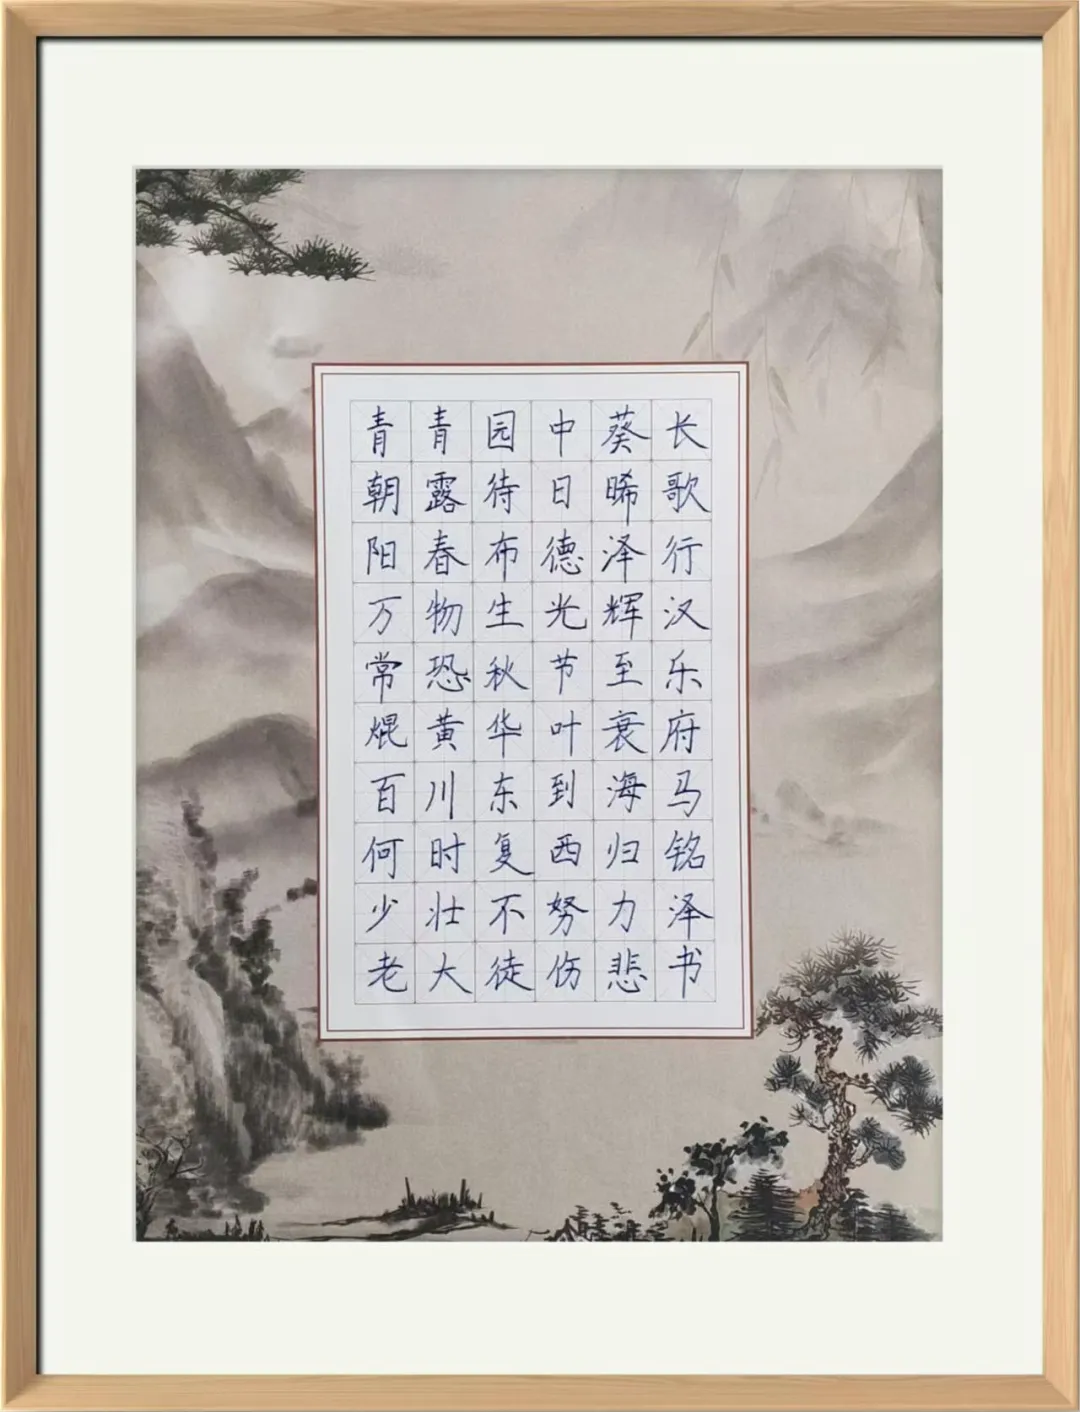 长歌行汉乐府马铭泽书
青青园中葵
朝露待日晞
阳春布德泽
万物生光辉
常恐秋节至
焜黄华叶衰
百川东到海
何时复西归
少壮不努力
老大徒伤悲